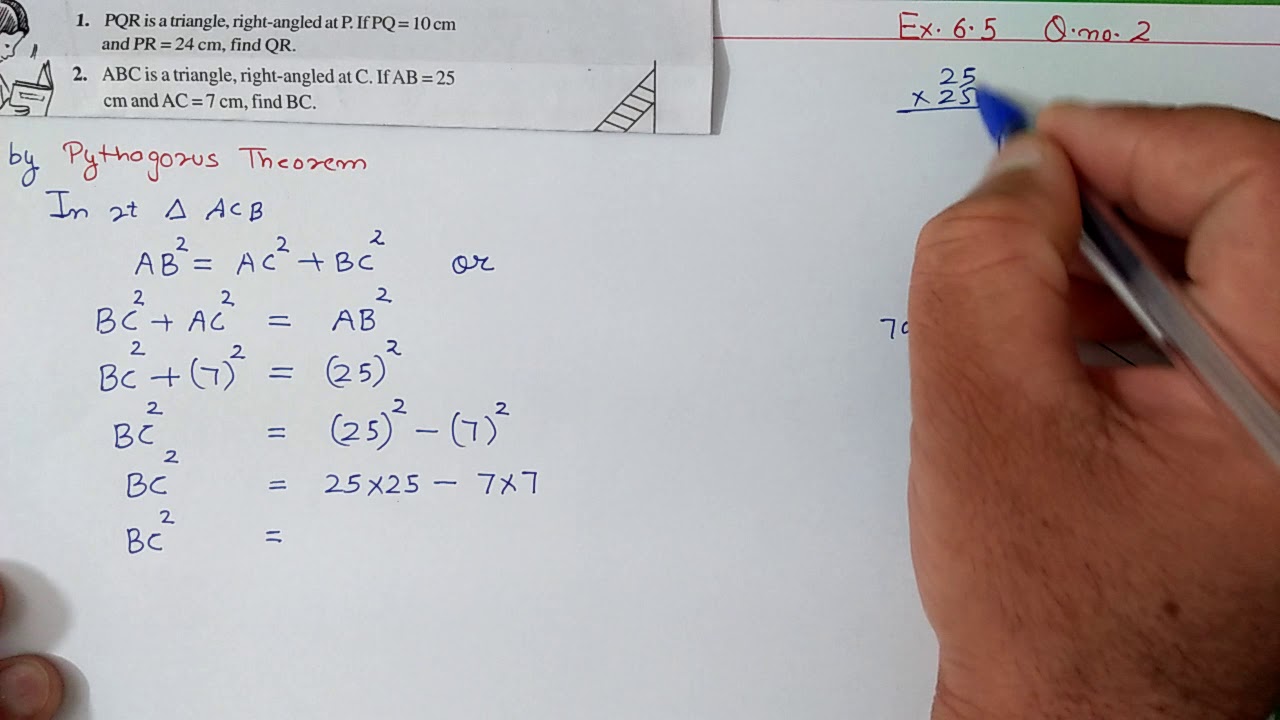 1. PQR is a triangle, right-angled at P. If PQ = 10 cm
and PR = 24 cm, find QR.
2. ABC is a triangle, right-angled at C. If AB = 25
cm and AC = 7 cm, find BC.
Ex. 6.5 Q.no. 2
25
× 25
by Pythogorus Theorem
In rt Δ ACB
AB² = AC² + BC² or
BC² + AC² = AB²
BC² + (7)² = (25)²
BC² = (25)² – (7)²
BC² = 25×25 – 7×7
BC² =